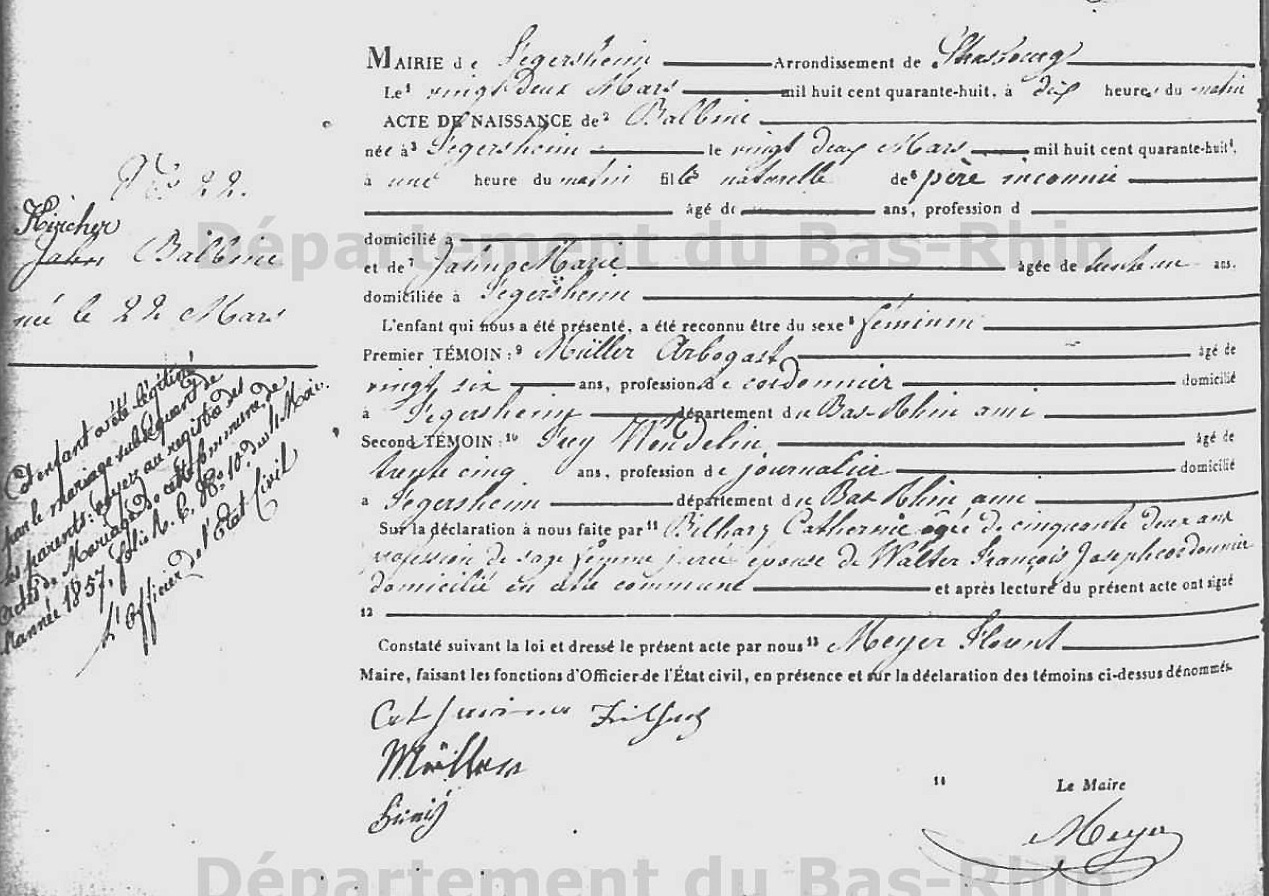 MAIRIE de Fegersheim Arrondissement de Strasbourg
Le¹ vingt deux Mars mil huit cent quarante-huit, à dix heures du matin
ACTE DE NAISSANCE de² Balbine
née à³ Fegersheim le vingt deux Mars mil huit cent quarante-huit⁴,
à une heure du matin fille naturelle de⁶ père inconnu
âgé de ans, profession d
domicilié à
et de⁷ Marie âgée de trente un ans.
domiciliée à Fegersheim
L'enfant qui nous a été présenté, a été reconnu être du sexe⁸ féminin
Premier TÉMOIN :⁹ Müller Arbogast âgé de
vingt six ans, profession de cordonnier domicilié
à Fegersheim département du Bas-Rhin ami
Second TÉMOIN :¹⁰ Frey Wendelin âgé de
trente cinq ans, profession de journalier domicilié
à Fegersheim département du Bas Rhin ami
Sur la déclaration à nous faite par¹¹ Bilharz Catherine âgée de cinquante deux ans
profession de sage femme jurée épouse de Walter François Joseph cordonnier
domicilié en dite commune et après lecture du présent acte ont signé
12
Constaté suivant la loi et dressé le présent acte par nous¹³ Meyer Florent
Maire, faisant les fonctions d'Officier de l'État civil, en présence et sur la déclaration des témoins ci-dessus dénommés.
Müller
14 Le Maire
Meyer
No 22.
Kircher
Balbine
née le 22 Mars
Cet enfant a été légitimé
par le mariage subséquent de
ses parents: voyez au registre des
actes de Mariage de cette commune de
l'année 1857, No 10 du 11 Mai.
L'Officier de l'Etat Civil
Département du Bas-Rhin
Département du Bas-Rhin